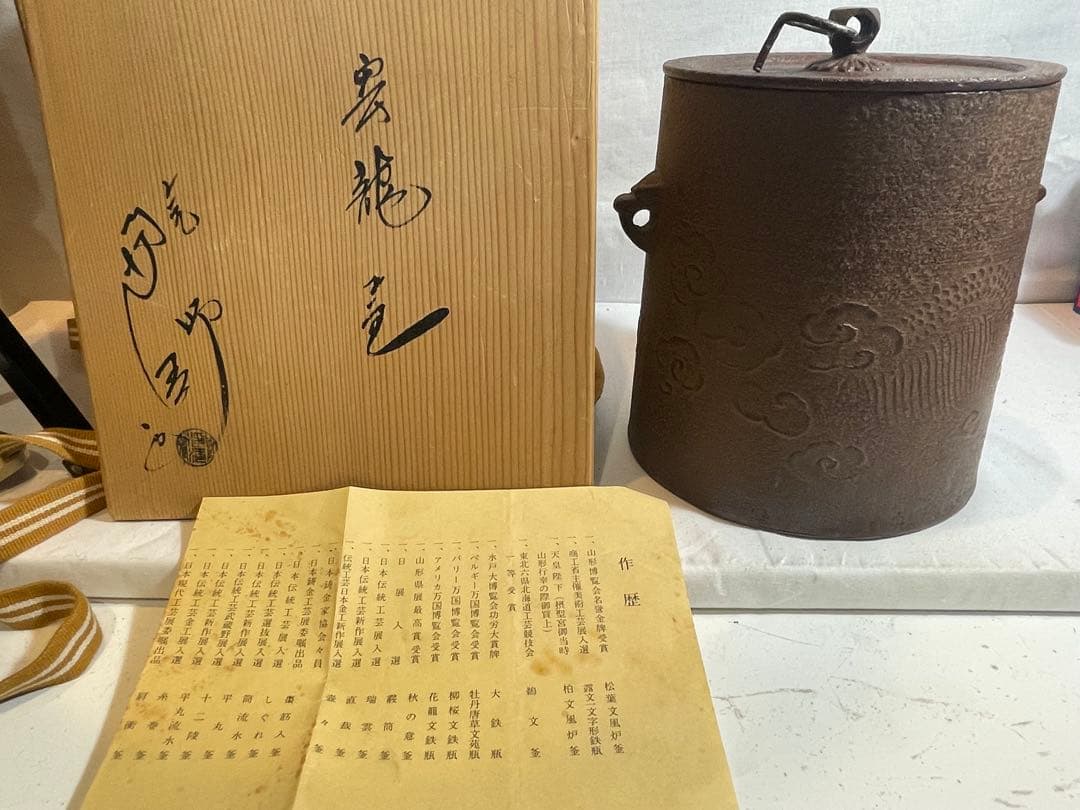 雲龍釜
作歴
一、山形博覧会名誉金牌受賞 松葉文風炉釜
一、商工省主催美術工芸展入選 露文一文字形鉄瓶
一、天皇陛下(摂聖宮御当時
山形行幸の際御買上) 柏文風炉釜
一、東北六県北海道工芸競技会
一等受賞 鶴文釜
一、水戸大博覧会功労大賞牌 大鉄瓶
一、ベルギー万国博覧会受賞 牡丹唐草文苑瓶
一、パリー万国博覧会受賞 柳桜文鉄瓶
一、アメリカ万国博覧会受賞 花籠文鉄瓶
一、山形県展最高賞受賞 秋の意釜
一、日展入選 霰筒釜
一、日本伝統工芸展入選 瑞雲釜
伝統工芸日本金工新作展入選 直哉釜
一、日本鋳金家協会々員 釜
一、日本鋳金工芸展委嘱出品
一、日本伝統工芸展入選 棗筋釜
一、日本工芸選抜展入選 しぐれ釜
一、日本伝統工芸新作展入選 筒流水釜
一、日本伝統工芸武蔵野展入選 平丸釜
一、日本伝統工芸新作展入選 十二陵釜
一、日本金工展入選 平丸流水釜
一、日本現代工芸展委嘱出品 肩衝釜
糸巻釜